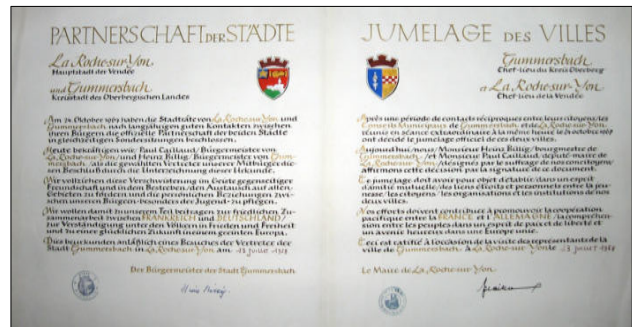 PARTNERSCHAFT DER STÄDTE
La Roche-sur-Yon
Hauptstadt der Vendée
und Gummersbach
Kreisstadt des Oberbergischen Landes
Am 24. Oktober 1969 haben die Stadträte von La Roche-sur-Yon und
Gummersbach nach langjährigen guten Kontakten zwischen
ihren Bürgern die offizielle Partnerschaft der beiden Städte
in gleichzeitigen Sondersitzungen beschlossen.
Heute bekräftigen wir, Paul Caillaud, Bürgermeister von
La Roche-sur-Yon, und Heinz Billig, Bürgermeister von Gum-
mersbach, als die gewählten Vertreter unserer Mitbürger die-
sen Beschluß durch die Unterzeichnung dieser Urkunde.
Wir verstehen diese Verschwisterung im Geiste gegenseitiger
Freundschaft und in dem Bestreben, den Austausch auf allen
Gebieten zu fördern und die persönlichen Beziehungen zwi-
schen unseren Bürgern - besonders der Jugend - zu pflegen.
Wir wollen damit zu unserem Teil beitragen zur friedlichen Zu-
sammenarbeit zwischen FRANKREICH und DEUTSCHLAND,
zur Verständigung unter den Völkern in Frieden und Freiheit
und zu einer glücklichen Zukunft in einem geeinten Europa.
Dies beurkunden anläßlich eines Besuches der Vertreter der
Stadt Gummersbach in La Roche-sur-Yon am
Der Bürgermeister der Stadt Gummersbach
JUMELAGE DES VILLES
Gummersbach
Chef-Lieu du Kreis Oberberg
a La Roche-sur-Yon
Chef-Lieu de la Vendée
Après une période de contacts réciproques entre leurs citoyens, les
Conseils Municipaux de Gummersbach et de La Roche-sur-Yon,
réunis en séance extraordinaire à la même heure le 24 octobre 1969
ont décidé le jumelage officiel de ces deux villes.
Aujourd'hui, nous, Monsieur Heinz Billig, bourgmestre de
Gummersbach, et Monsieur Paul Caillaud, député-maire de
La Roche-sur-Yon, désignés par le suffrage de nos concitoyens,
affermons cette décision par la signature de ce document.
Ce jumelage doit avoir pour objet d'établir, dans un esprit
d'amitié mutuelle, des liens étroits et personnels entre la jeu-
nesse, les citoyens, les organisations et les institutions de nos
deux villes.
Nos efforts doivent contribuer à promouvoir la coopération
pacifique entre la FRANCE et l'ALLEMAGNE, la compréhen-
sion entre les peuples dans un esprit de paix et de liberté et
un avenir heureux dans une Europe unie.
Ceci est ratifié à l'occasion de la visite des représentants de la
ville de Gummersbach, à La Roche-sur-Yon le
Le Maire de La Roche-sur-Yon